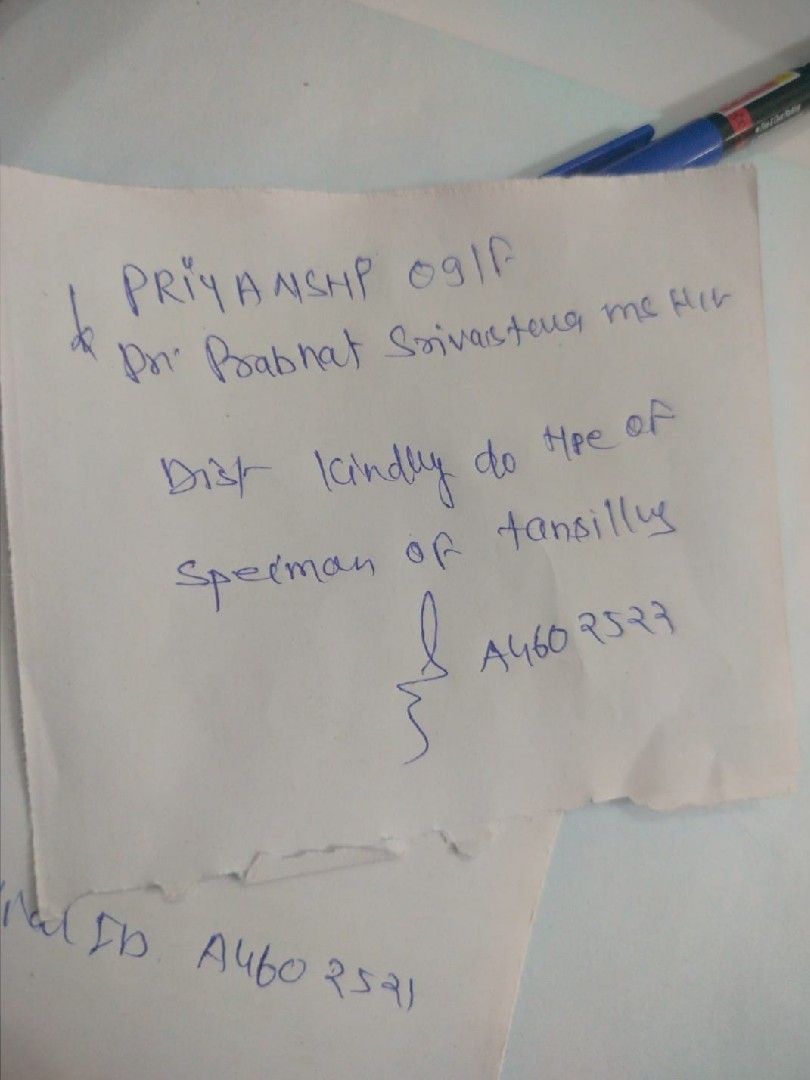 PRIYANSHP 09/F
Dr. Prabhat Srivastava ms
Dist kindly do Hpe of
Speciman of tansillus
A4602522
ID. A4602521